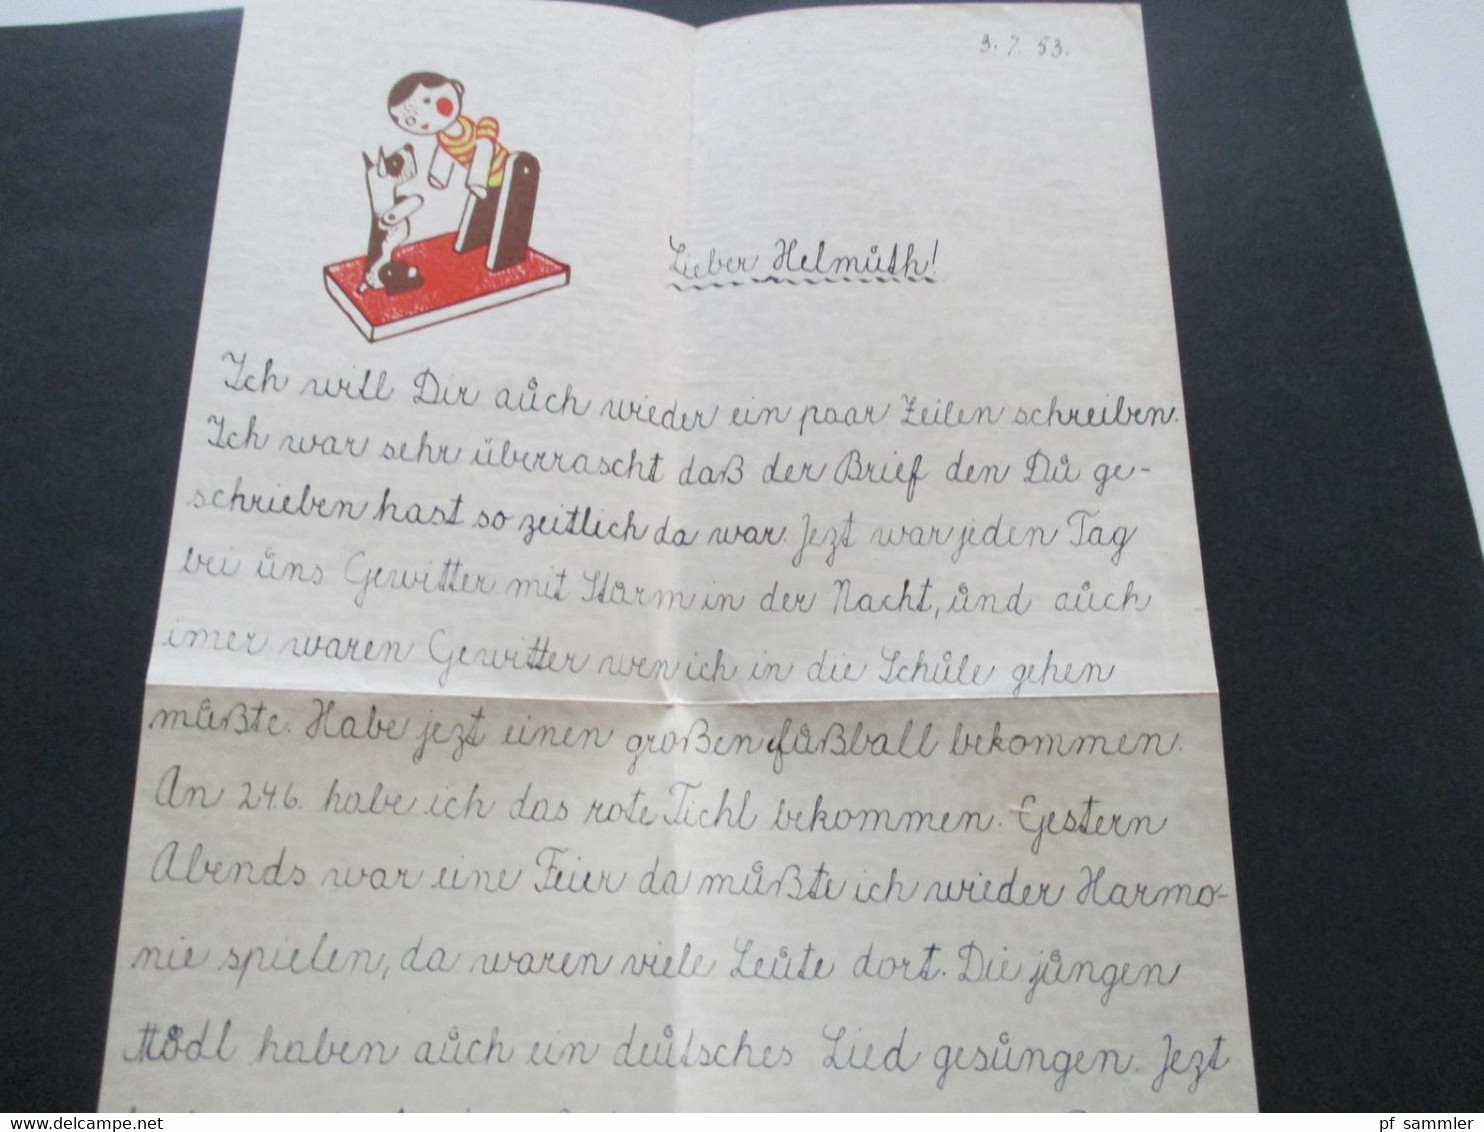 3. 7. 53.
Lieber Helmuth!
Ich will Dir auch wieder ein paar Zeilen schreiben.
Ich war sehr überrascht daß der Brief den Du ge-
schrieben hast so zeitlich da war. Jezt war jeden Tag
bei uns Gewitter mit Sturm in der Nacht, und auch
imer waren Gewitter wen ich in die Schule gehen
mußte. Habe jezt einen großen Fußball bekommen.
An 24.6. habe ich das rote Tichl bekommen. Gestern
Abends war eine Feier da mußte ich wieder Harmo-
nie spielen, da waren viele Leute dort. Die jungen
Mådl haben auch ein deutsches Lied gesungen. Jezt
pf_sammler